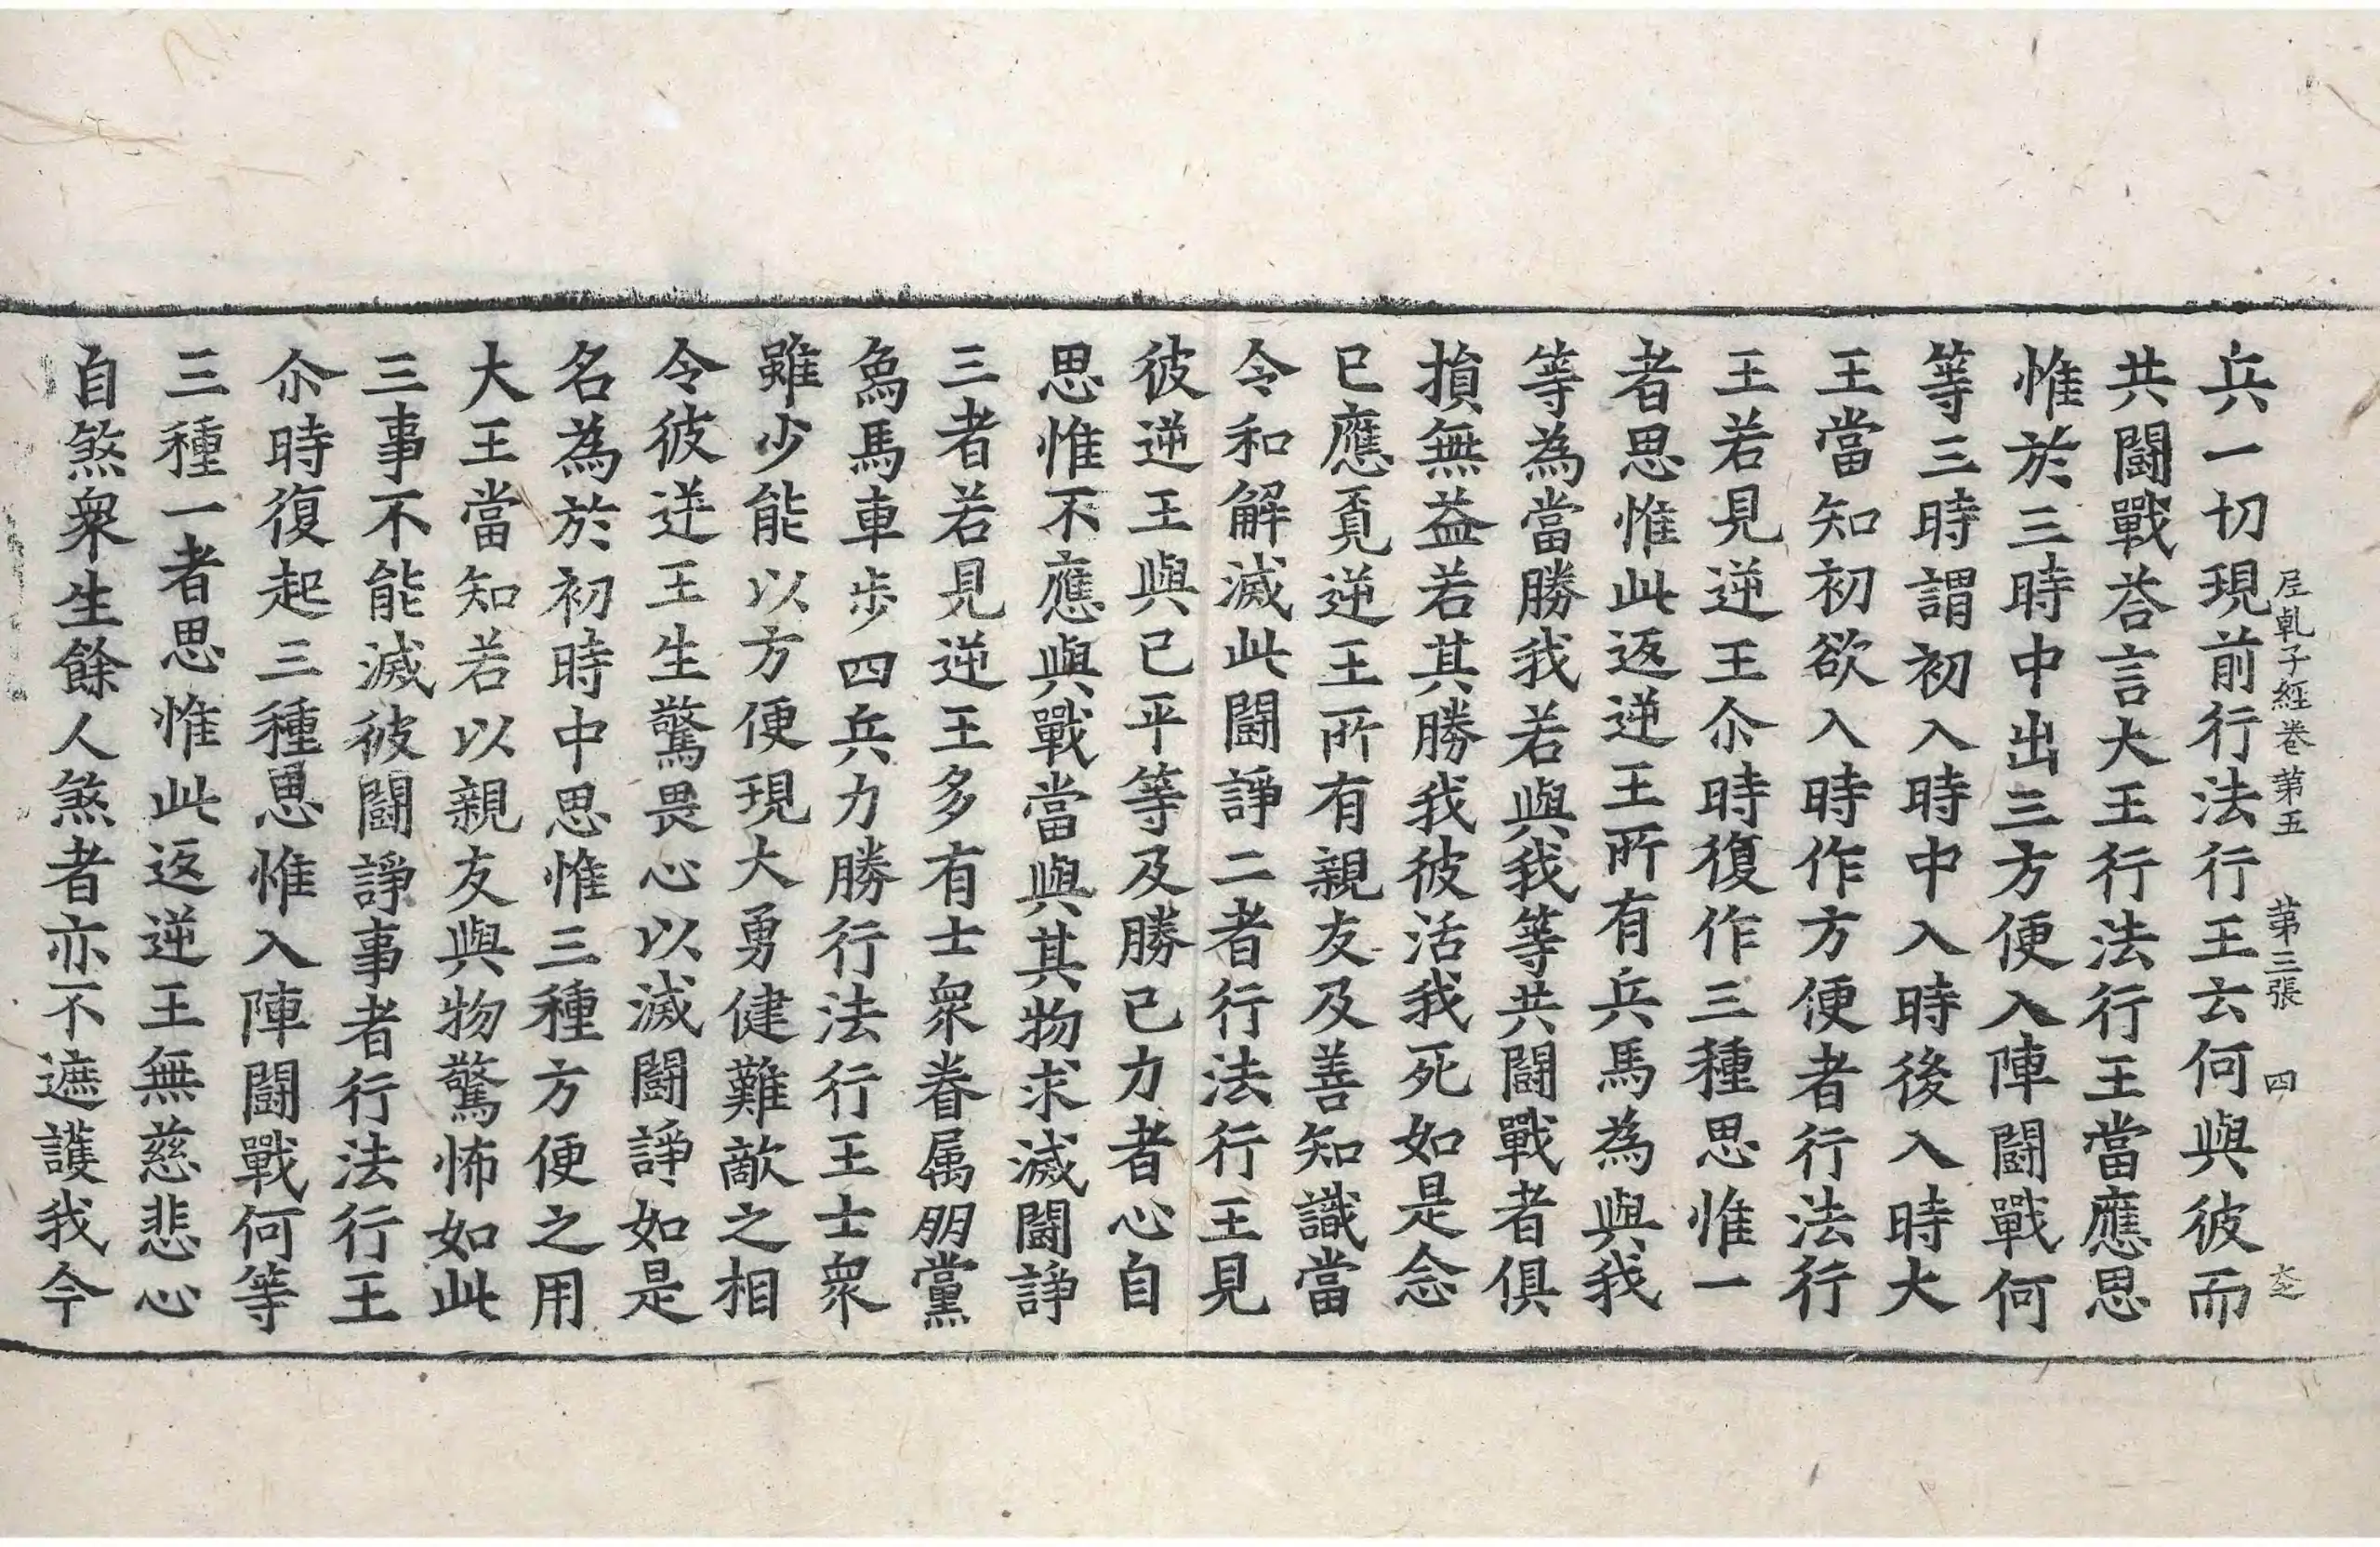 兵一切現前行法行王云何與彼而
尼乹子經卷第五 第三張 四
共鬪戰荅言大王行法行王當應思
惟於三時中出三方便入陣鬪戰何
等三時謂初入時中入時後入時大
王當知初欲入時作方便者行法行
王若見逆王尒時復作三種思惟一
者思惟此返逆王所有兵馬為與我
等為當勝我若與我等共鬪戰者俱
損無益若其勝我彼活我死如是念
已應覔逆王所有親友及善知識當
令和解滅此鬪諍二者行法行王見
彼逆王與己平等及勝己力者心自
思惟不應與戰當與其物求滅鬪諍
三者若見逆王多有士衆眷属朋黨
象馬車步四兵力勝行法行王士衆
雖少能以方便現大勇健難敵之相
令彼逆王生驚畏心以滅鬪諍如是
名為於初時中思惟三種方便之用
大王當知若以親友與物驚怖如此
三事不能滅彼鬪諍事者行法行王
尒時復起三種思惟入陣鬪戰何等
三種一者思惟此返逆王無慈悲心
自煞衆生餘人煞者亦不遮護我今